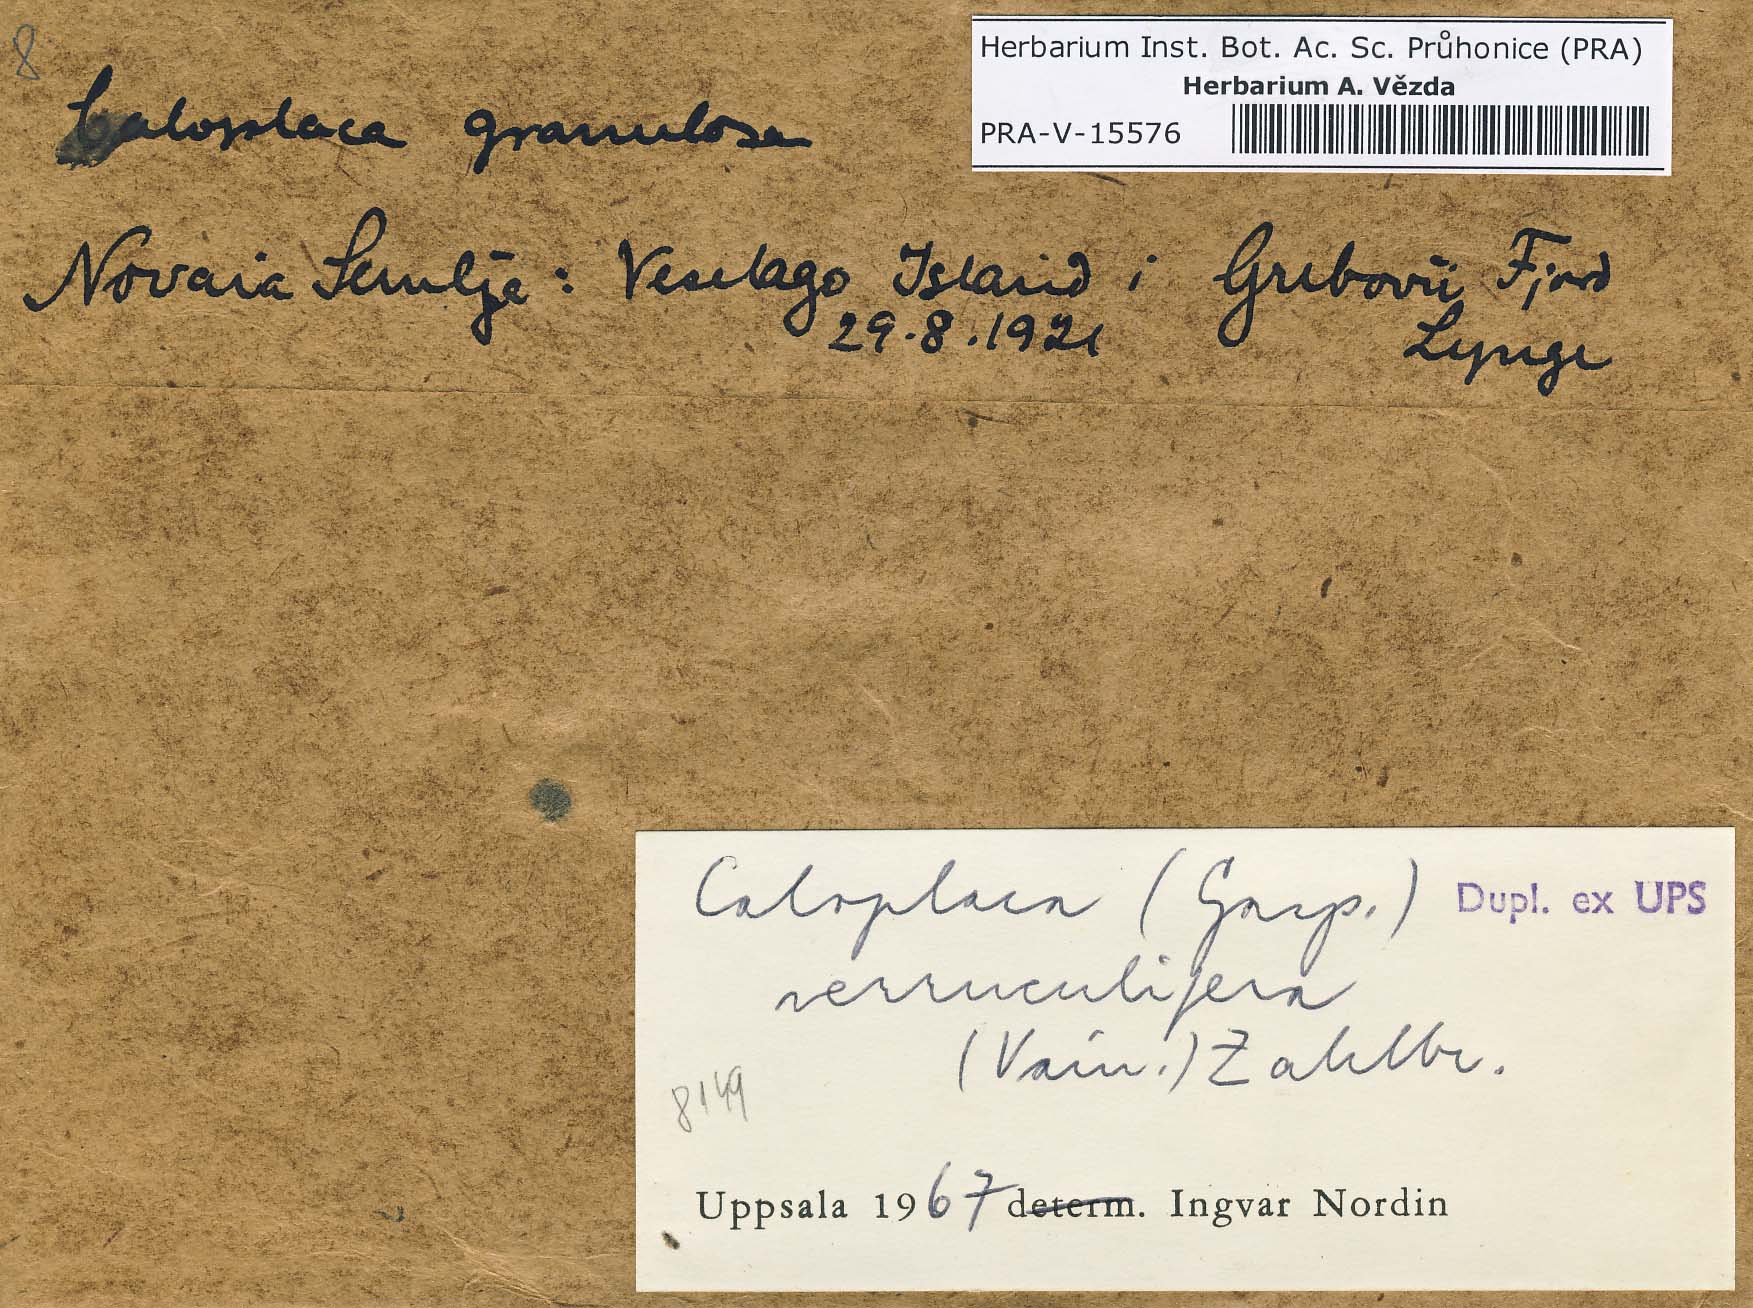 8
Herbarium Inst. Bot. Ac. Sc. Průhonice (PRA)
Herbarium A. Vězda
PRA-V-15576
Caloplaca granulosa
Novaia Semlje: Veselago Island i Gribovii Fjord
29.8.1921 Lynge
Caloplaca (Gasp.) Dupl. ex UPS
verruculifera
(Vain.) Zahlbr.
8149
Uppsala 1967 determ. Ingvar Nordin